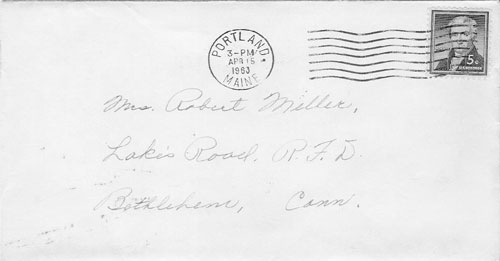 PORTLAND.
3-PM
APR 16
1963
MAINE
5¢
Mrs. Robert Miller,
Lakes Road. R.F.D.
Bethlehem, Conn.